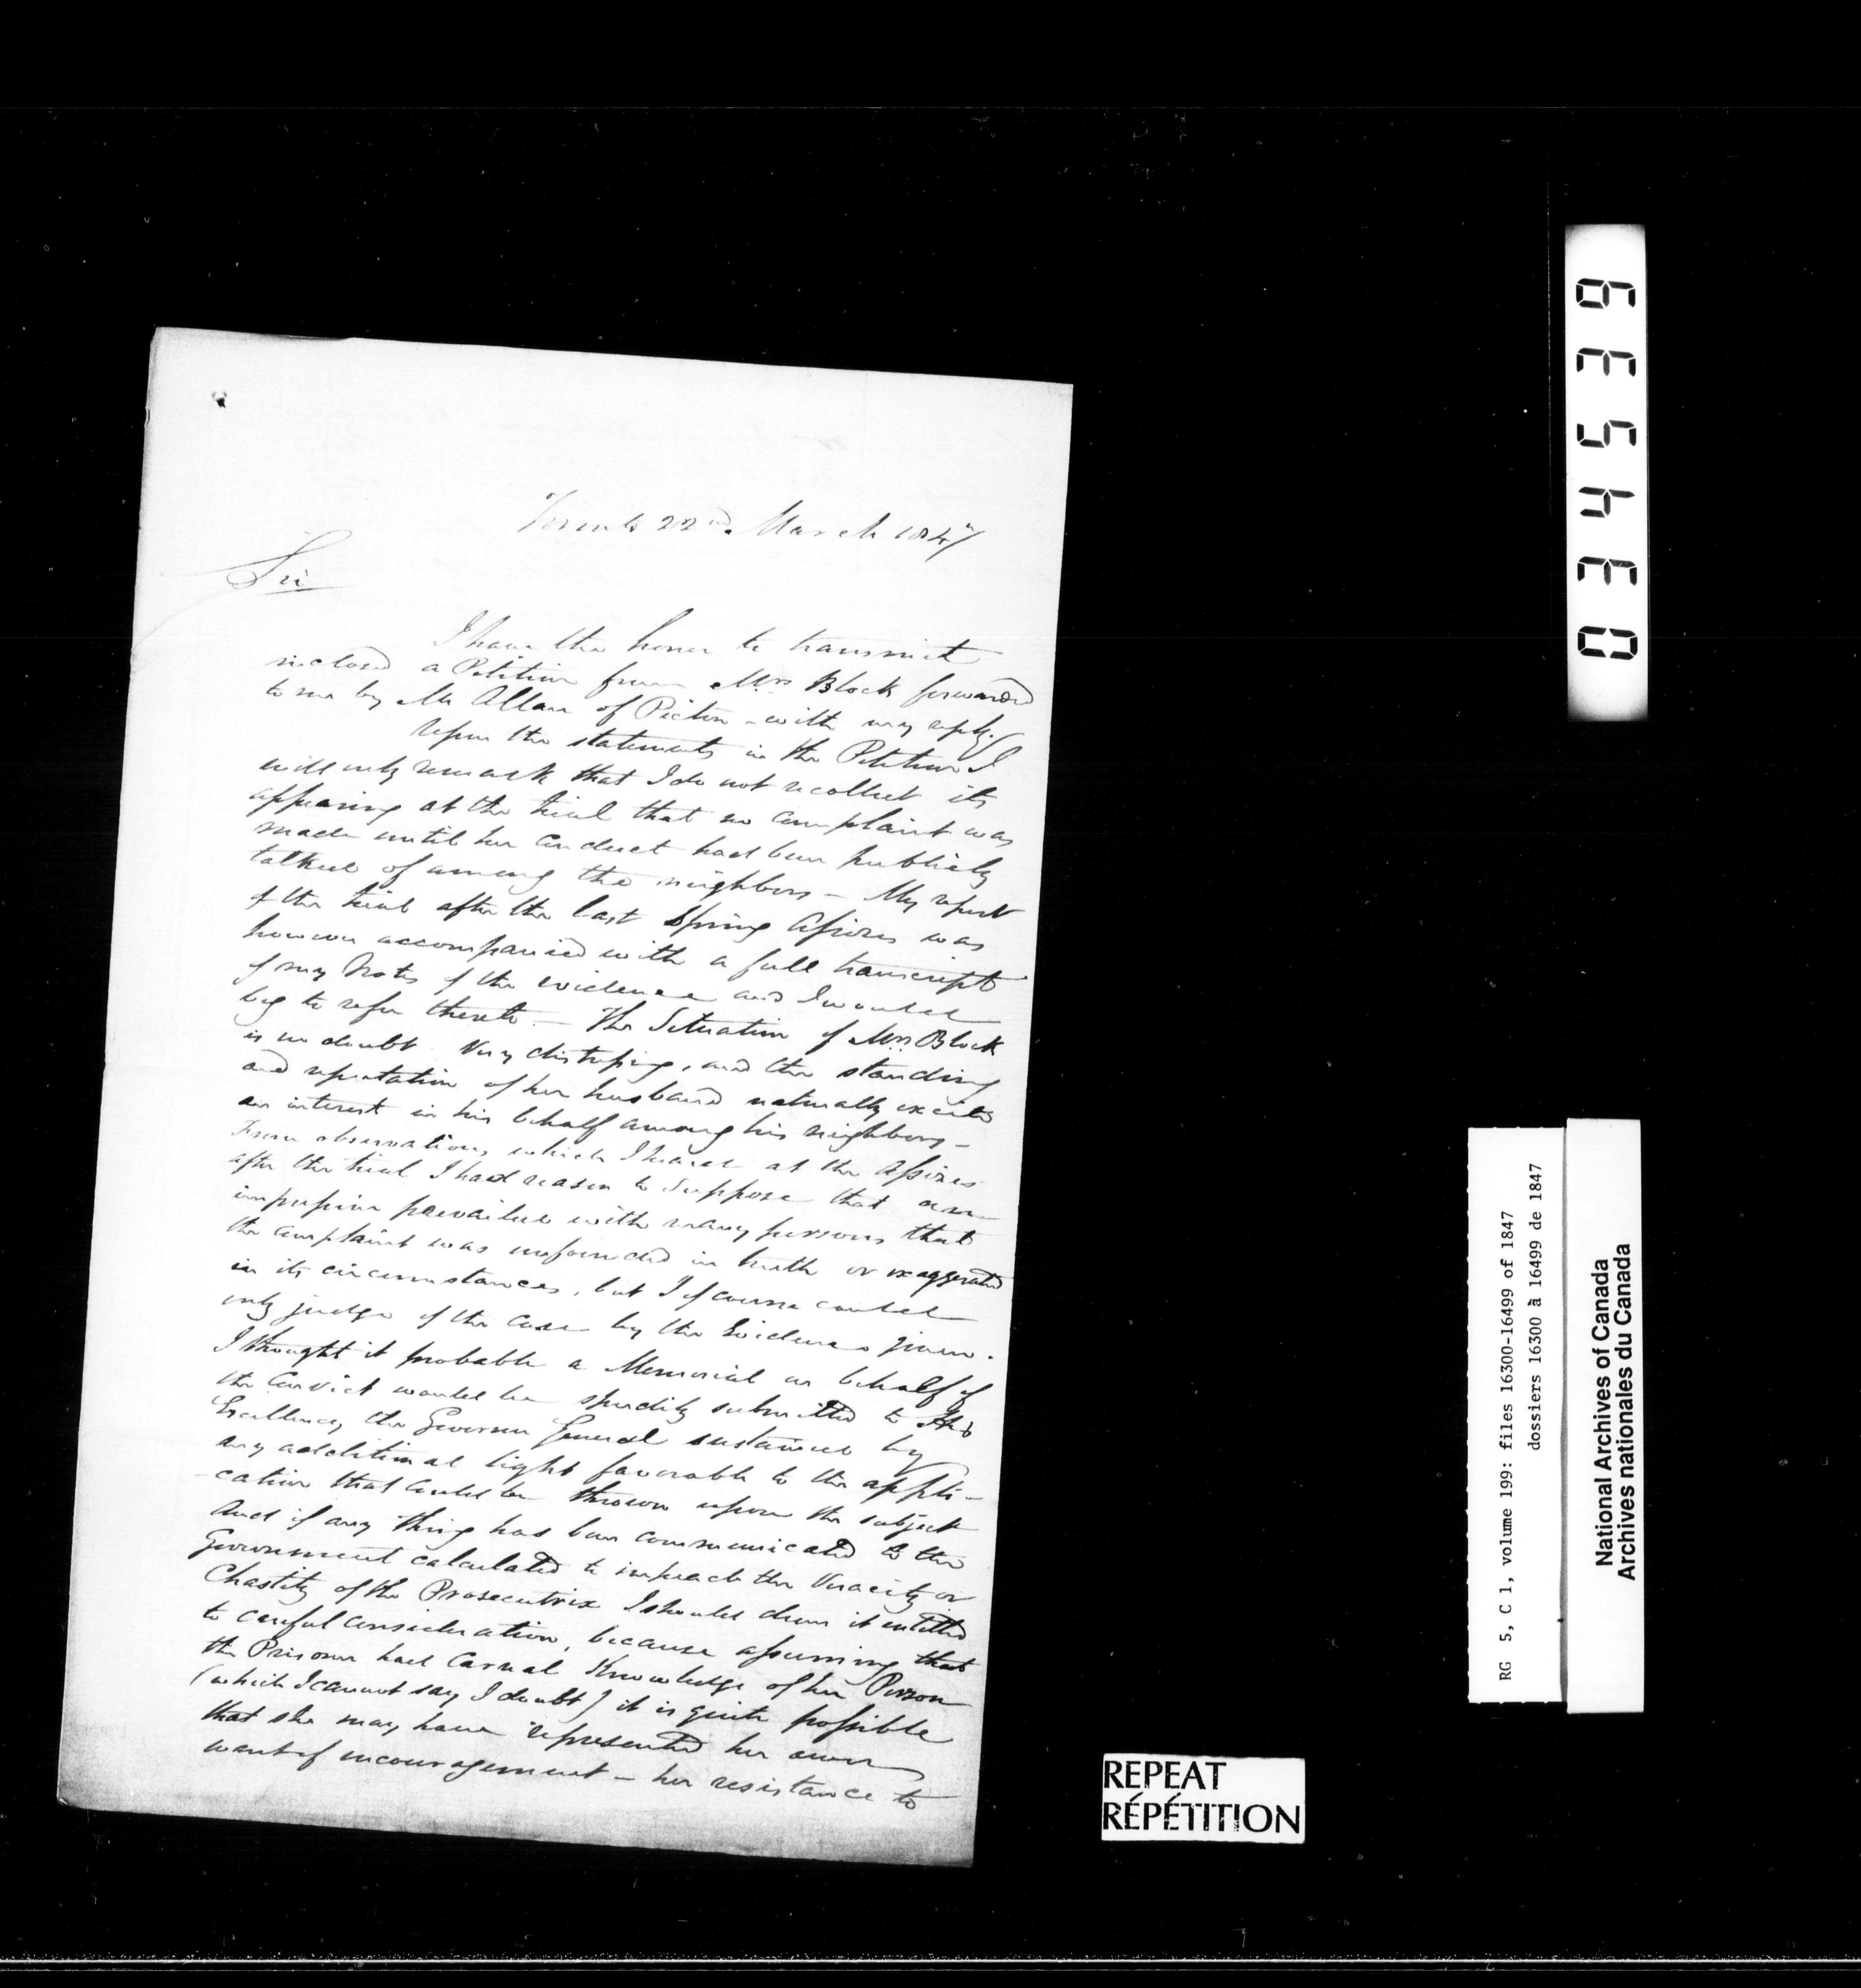 Toronto 22nd March 1847
Sir
I have the honor to transmit
inclosed a Petition from Mrs Block forwarded
to me by Mr Allan of Picton - with my reply.
Upon the statements in the Petition I
will only remark that I do not recollect its
appearing at the trial that no complaint was
made until her conduct had been publicly
talked of among the neighbors - My report
of the trial after the last Spring Assizes was
however accompanied with a full transcript
of my Notes of the evidence and I would
beg to refer thereto - The Situation of Mrs Block
is no doubt very distressing, and the standing
and reputation of her husband naturally excites
an interest in his behalf among his neighbors -
From observations which I heard at the Assizes
after the trial I had reason to suppose that an
impression prevailed with many persons that
the complaint was unfounded in truth or exaggerated
in its circumstances, but I of course could
only judge of the case by the Evidence given.
I thought it probable a Memorial on behalf of
the Convict would be speedily submitted to His
Excellency the Governor General sustained by
any additional light favorable to the appli-
-cation that could be thrown upon the subject
And if any thing has been communicated to the
Government calculated to impeach the Veracity or
Chastity of the Prosecutrix I should deem it entitled
to careful consideration, because assuming that
the Prisoner had Carnal Knowledge of her Person
(which I cannot say I doubt) it is quite possible
that she may have represented her own
want of encouragement - her resistance to
034539
RG 5, C 1, volume 199: files 16300-16499 of 1847
dossiers 16300 à 16499 de 1847
National Archives of Canada
Archives nationales du Canada
REPEAT
RÉPÉTITION